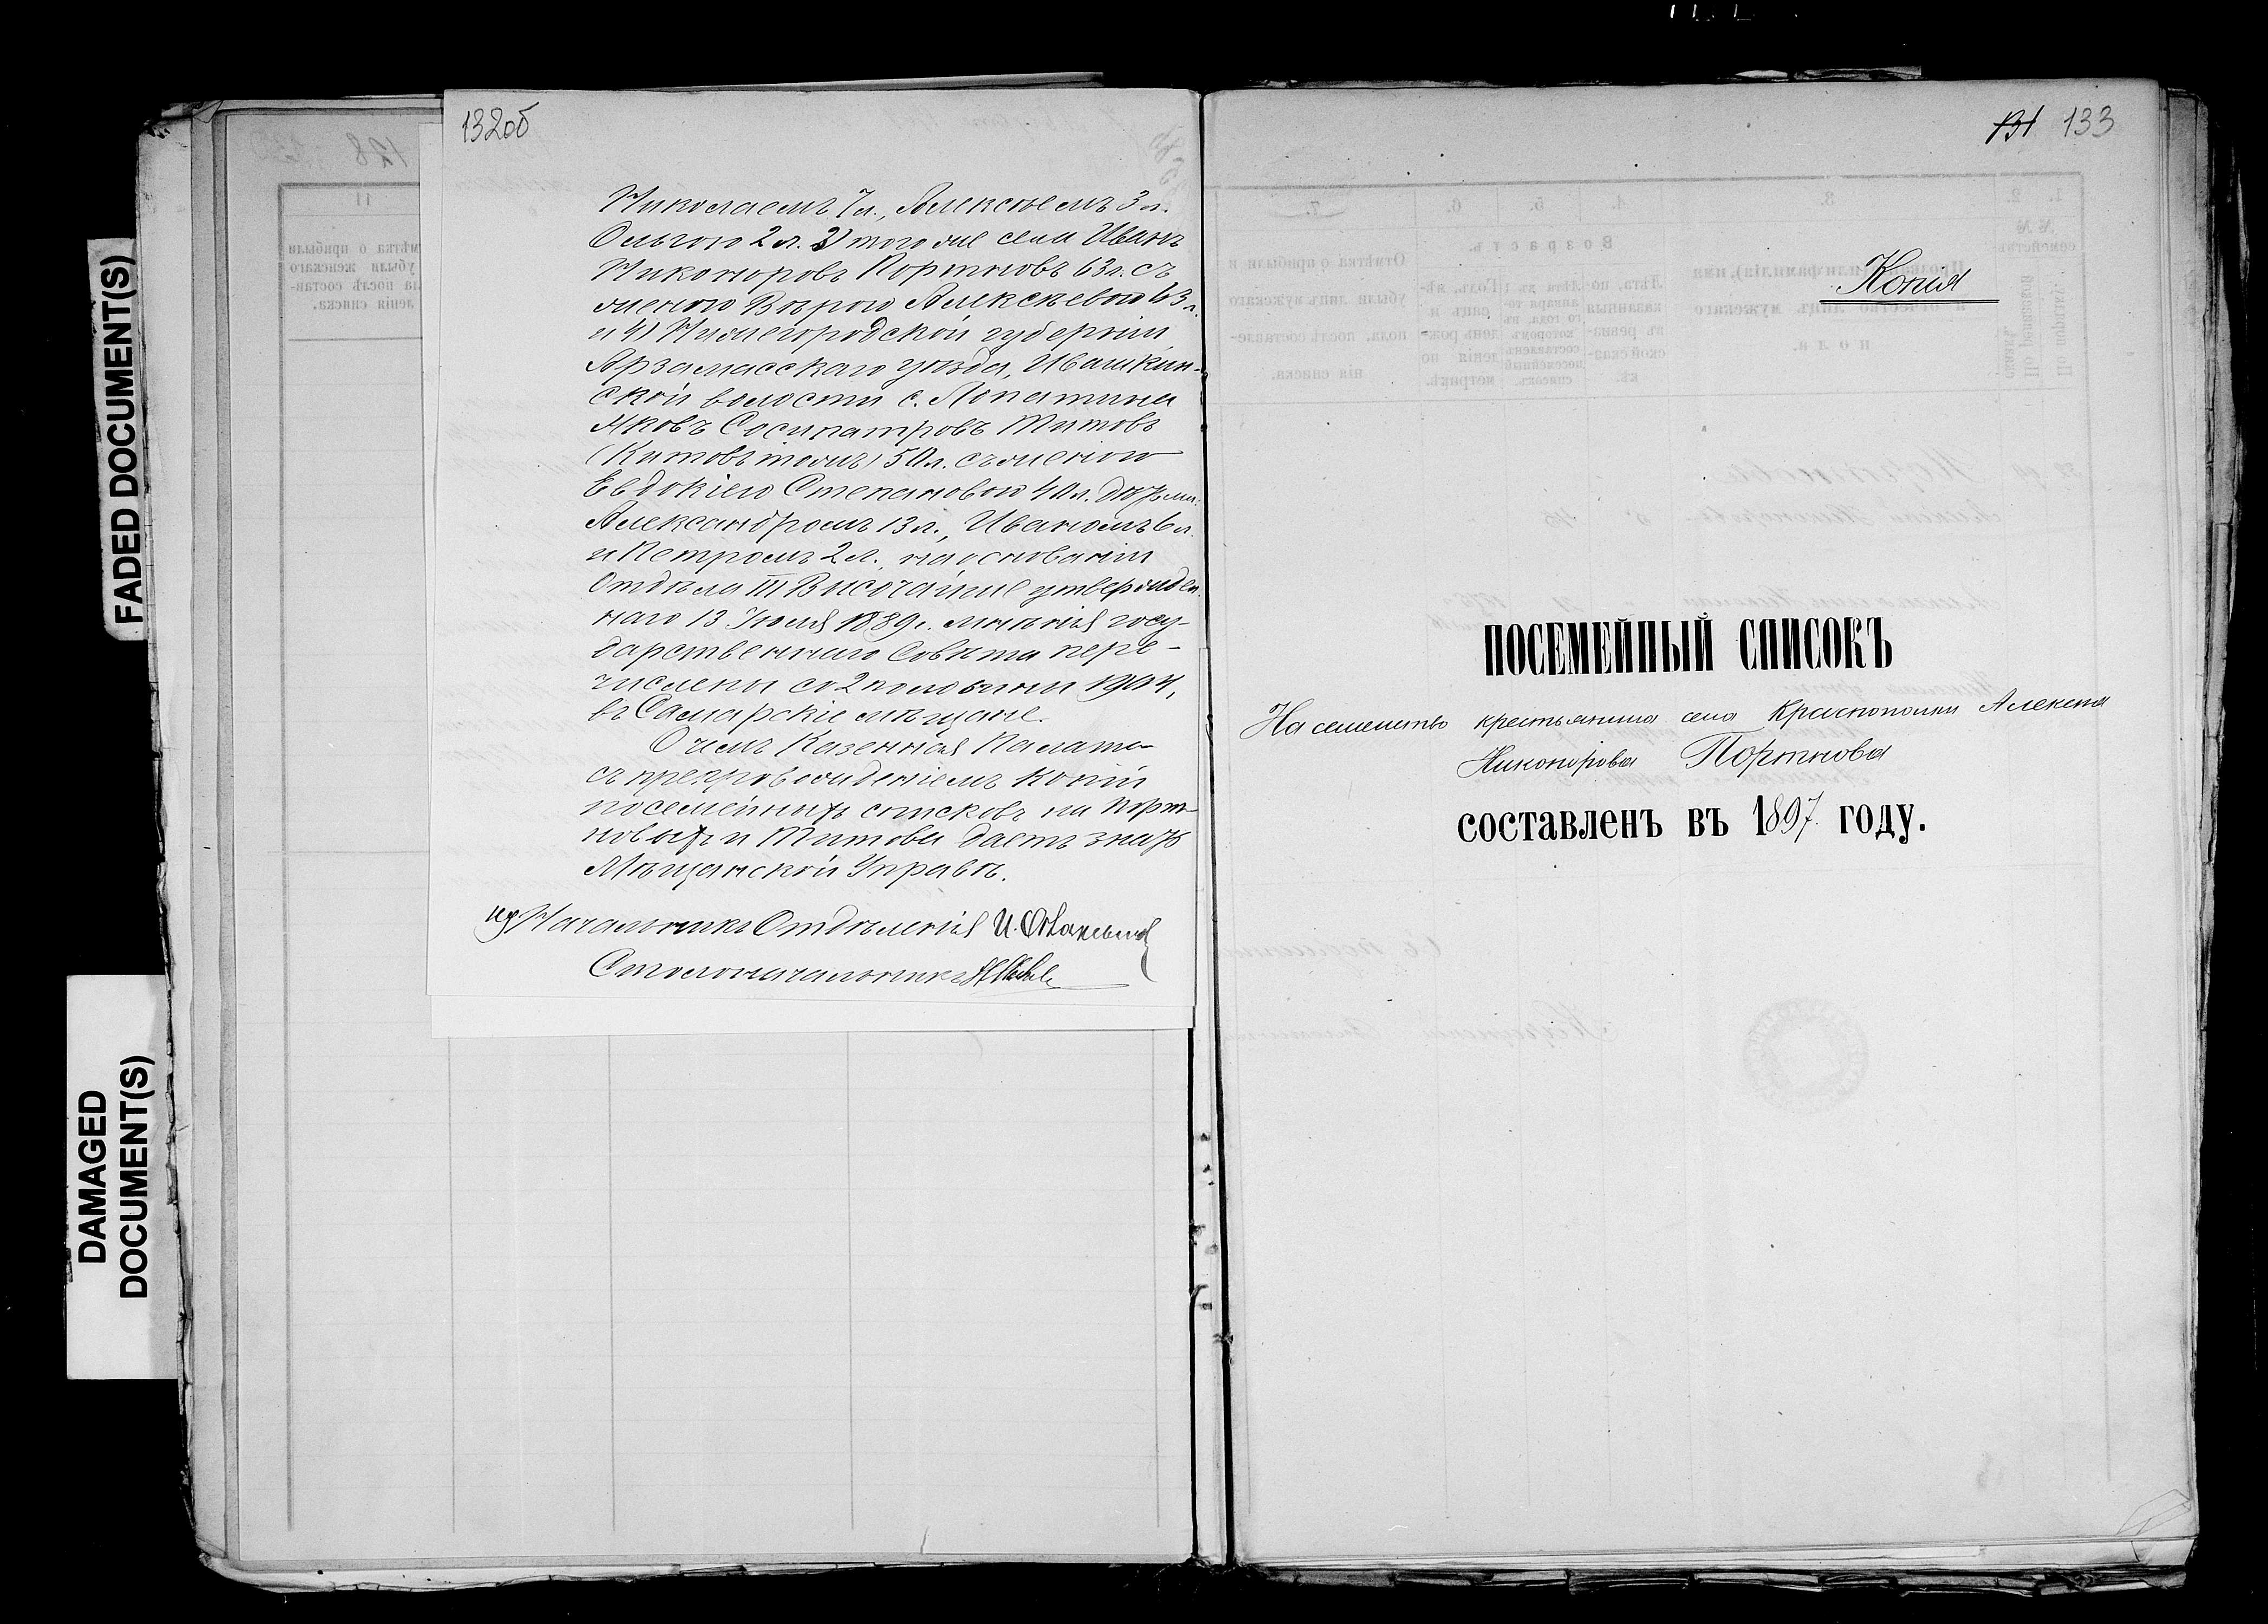 132об
Николаемъ 7л., Алексѣемъ 3 л.
Ольгою 2 л. 3) того же села Иванъ
Никоноровъ Портновъ 63л. съ
женою Вѣрою Алексѣевою 63 л.
и 4) Нижегородской губерніи
Арзамасскаго уѣзда, Ивашкин-
ской волости с. Лопатина
Яковъ Сосипатровъ Титовъ
(Китовъ тожъ) 50л. съ женою
Евдокіею Степановою 40л. дѣтьми
Александромъ 13 л., Иваномъ 6 л.
и Петромъ 2 л., на основаніи
Отдѣла III Высочайше утвержден-
наго 13 Іюля 1889г. мнѣнія госу-
дарственнаго Совѣта пере-
числены со 2 половины 1904,
въ Самарскіе мѣщане.
О чемъ Казенная Палата
съ препровожденіемъ копій
посемейныхъ списковъ на Порт-
новыхъ и Титова даетъ знать
Мѣщанской Управѣ.
Начальникъ Отдѣленія И.
Столоначальникъ
131 133
Копія
ПОСЕМЕЙНЫЙ СПИСОКЪ
На семейство крестьянина села Краснополки Алексѣя
Никонорова Портнова
СОСТАВЛЕНЪ ВЪ 1897 ГОДУ.
11
128
FADED DOCUMENT(S)
DAMAGED
DOCUMENT(S)